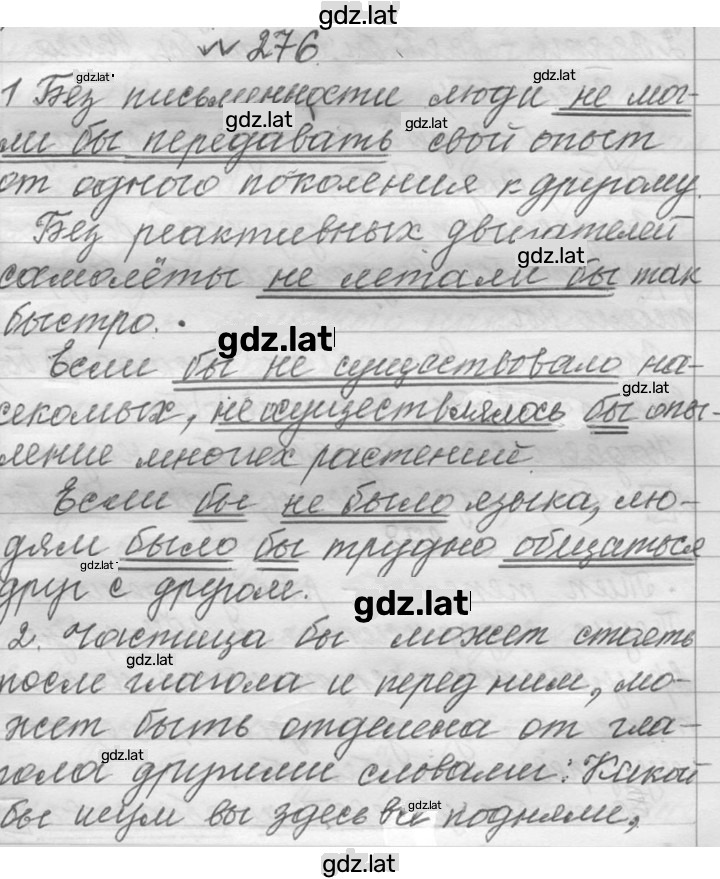 gdz.lat
№ 276.
gdz.lat gdz.lat
1 Без письменности люди не мог-
gdz.lat gdz.lat
ли бы передавать свой опыт
от одного поколения к другому.
Без реактивных двигателей
gdz.lat
самолёты не летали бы так
быстро.
gdz.lat
Если бы не существовало на-
gdz.lat
секомых, не осуществлялось бы опы-
ление многих растений
Если бы не было языка, лю-
дям было бы трудно общаться
gdz.lat
друг с другом.
gdz.lat
2. Частица бы может стоять
gdz.lat
после глагола и перед ним, мо-
жет быть отделена от гла-
gdz.lat
гола другими словами: Какой
gdz.lat
бы шум вы здесь ни подняли,
gdz.lat